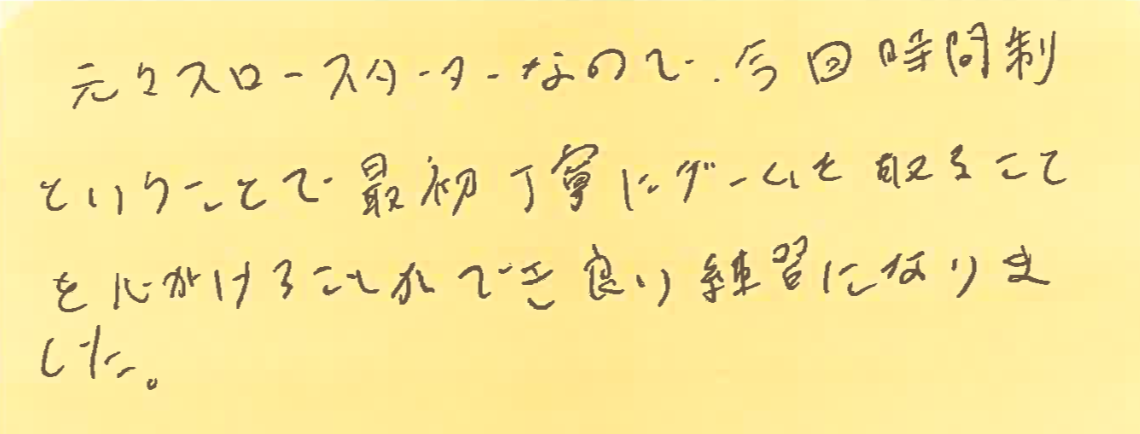 元々スロースターターなので、今回時間制
ということで最初丁寧にゲームを取ること
を心がけることができ良い練習になりま
した。